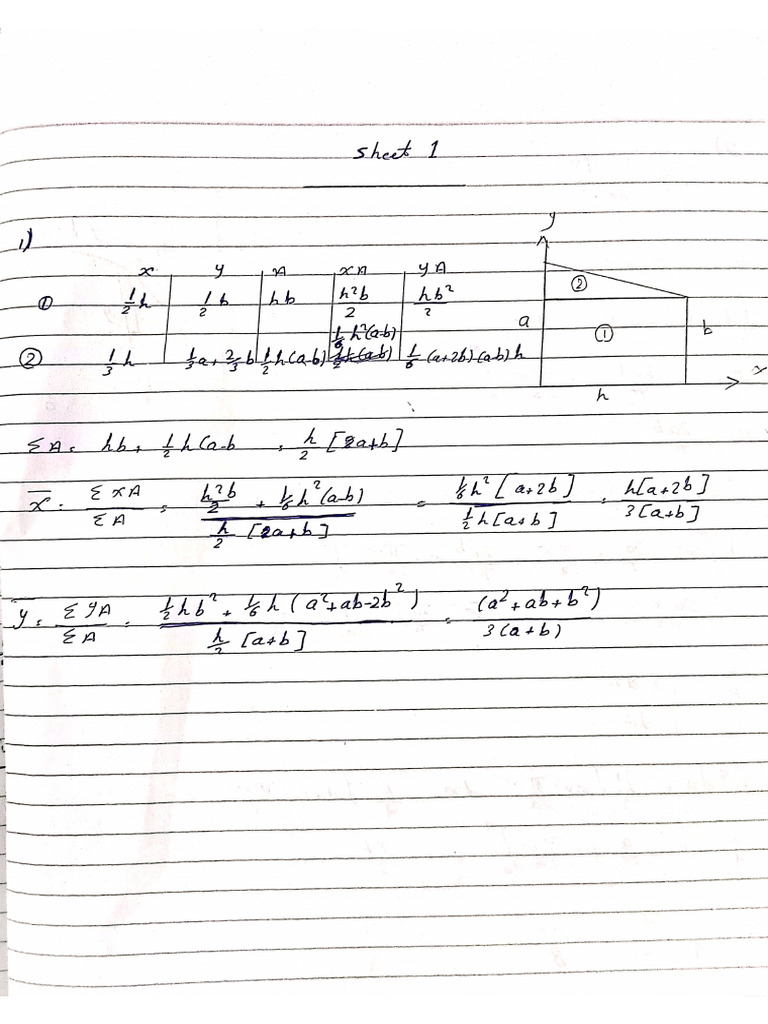 Sheet 1
1)
x y A xA yA
① 1/2 h 1/2 b hb h²b/2 hb²/2
② 1/3 h 1/3 a + 2/3 b 1/2 h(a-b) 1/6 h²(a-b) 1/6 (a+2b)(a-b)h
y
②
a ① b
x
h
ΣA = hb + 1/2 h(a-b = h/2 [a+b]
x̄ = ΣxA/ΣA = (h²b/2 + 1/6 h²(a-b))/(h/2 [a+b]) = (1/6 h²[a+2b])/(1/2 h[a+b]) = h[a+2b]/3[a+b]
ȳ = ΣyA/ΣA = (1/2 hb² + 1/6 h(a²+ab-2b²))/(h/2 [a+b]) = (a²+ab+b²)/3(a+b)